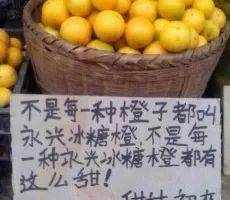 不是每一种橙子都叫
永兴冰糖橙,不是每
一种永兴冰糖橙都有
这么甜!